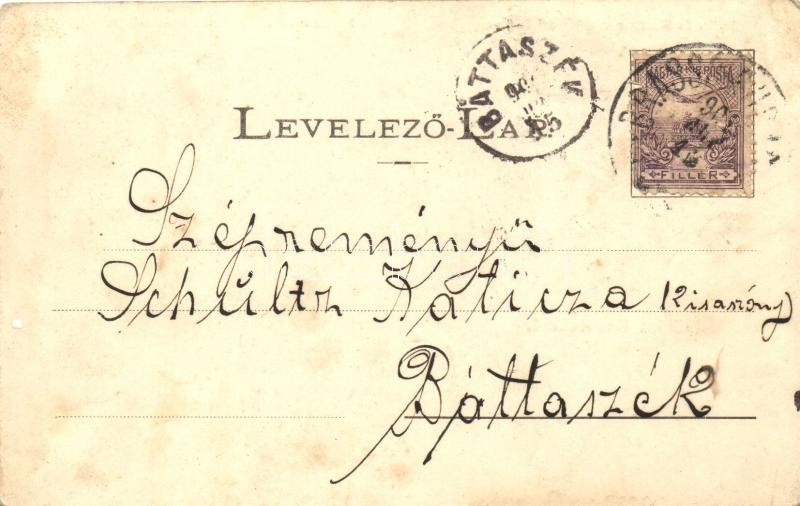 LEVELEZŐ-LAP
BÁTTASZÉK
FILLÉR
Szépreményű
Schültz Katicza Kisasszony
Báttaszék